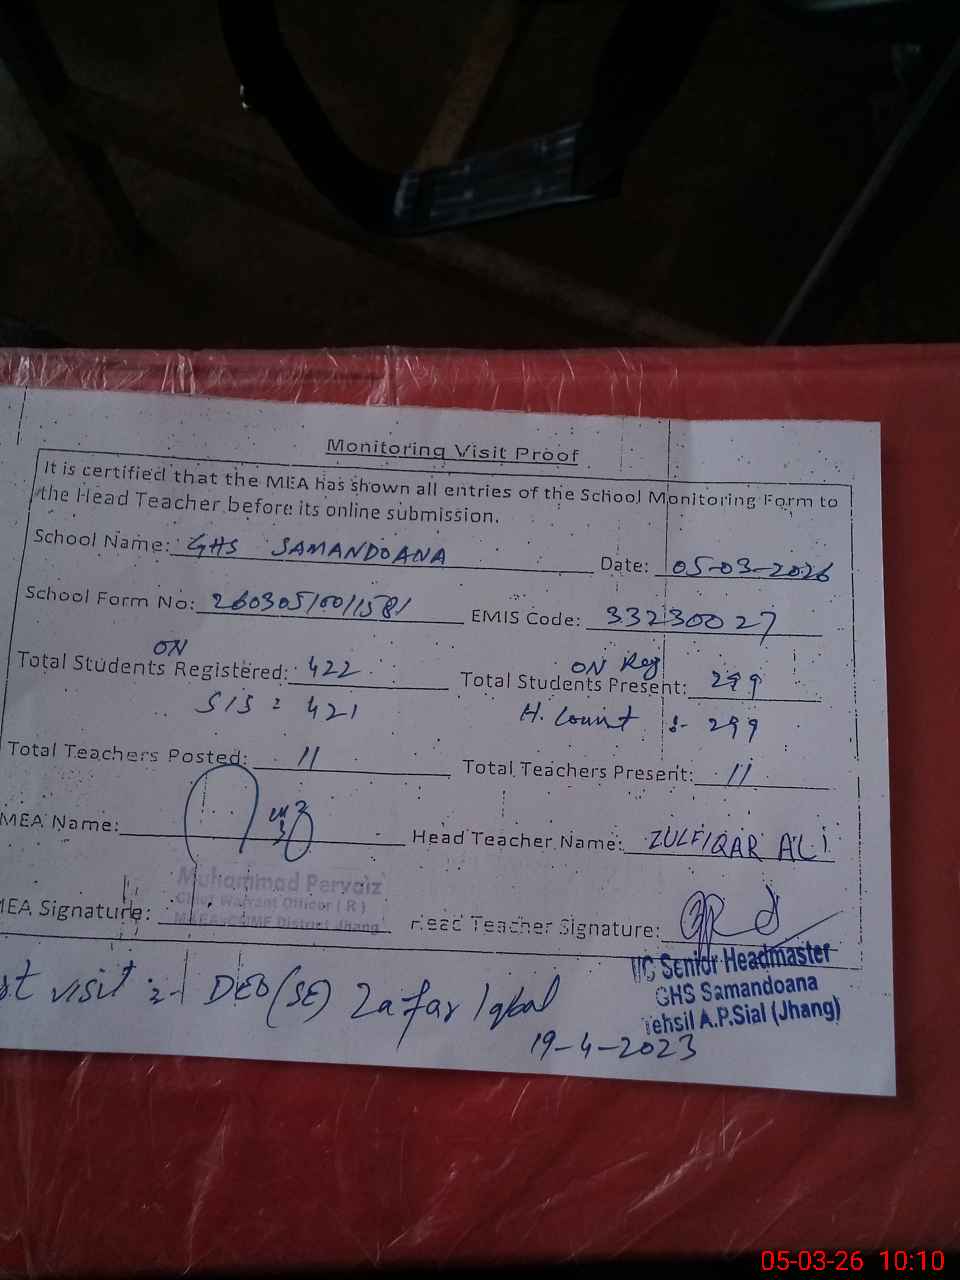 Monitoring Visit Proof
It is certified that the MEA has shown all entries of the School Monitoring Form to
the Head Teacher before its online submission.
School Name: GHS SAMANDOANA Date: 05-03-2026
School Form No: EMIS Code: 33230027
ON ON Reg
Total Students Registered: 422 Total Students Present: 299
SIS = 421 H. Count :- 299
Total Teachers Posted: 11 Total Teachers Present: 11
MEA Name: Head Teacher Name: ZULFIQAR ALI
Muhammad Pervaiz
Chief Warrant Officer ( R )
District Jhang
MEA Signature: Head Teacher Signature:
I/C Senior Headmaster
GHS Samandoana
Tehsil A.P.Sial (Jhang)
st visit :- DEO (SE) Zafar Iqbal
19-4-2023
05-03-26 10:10